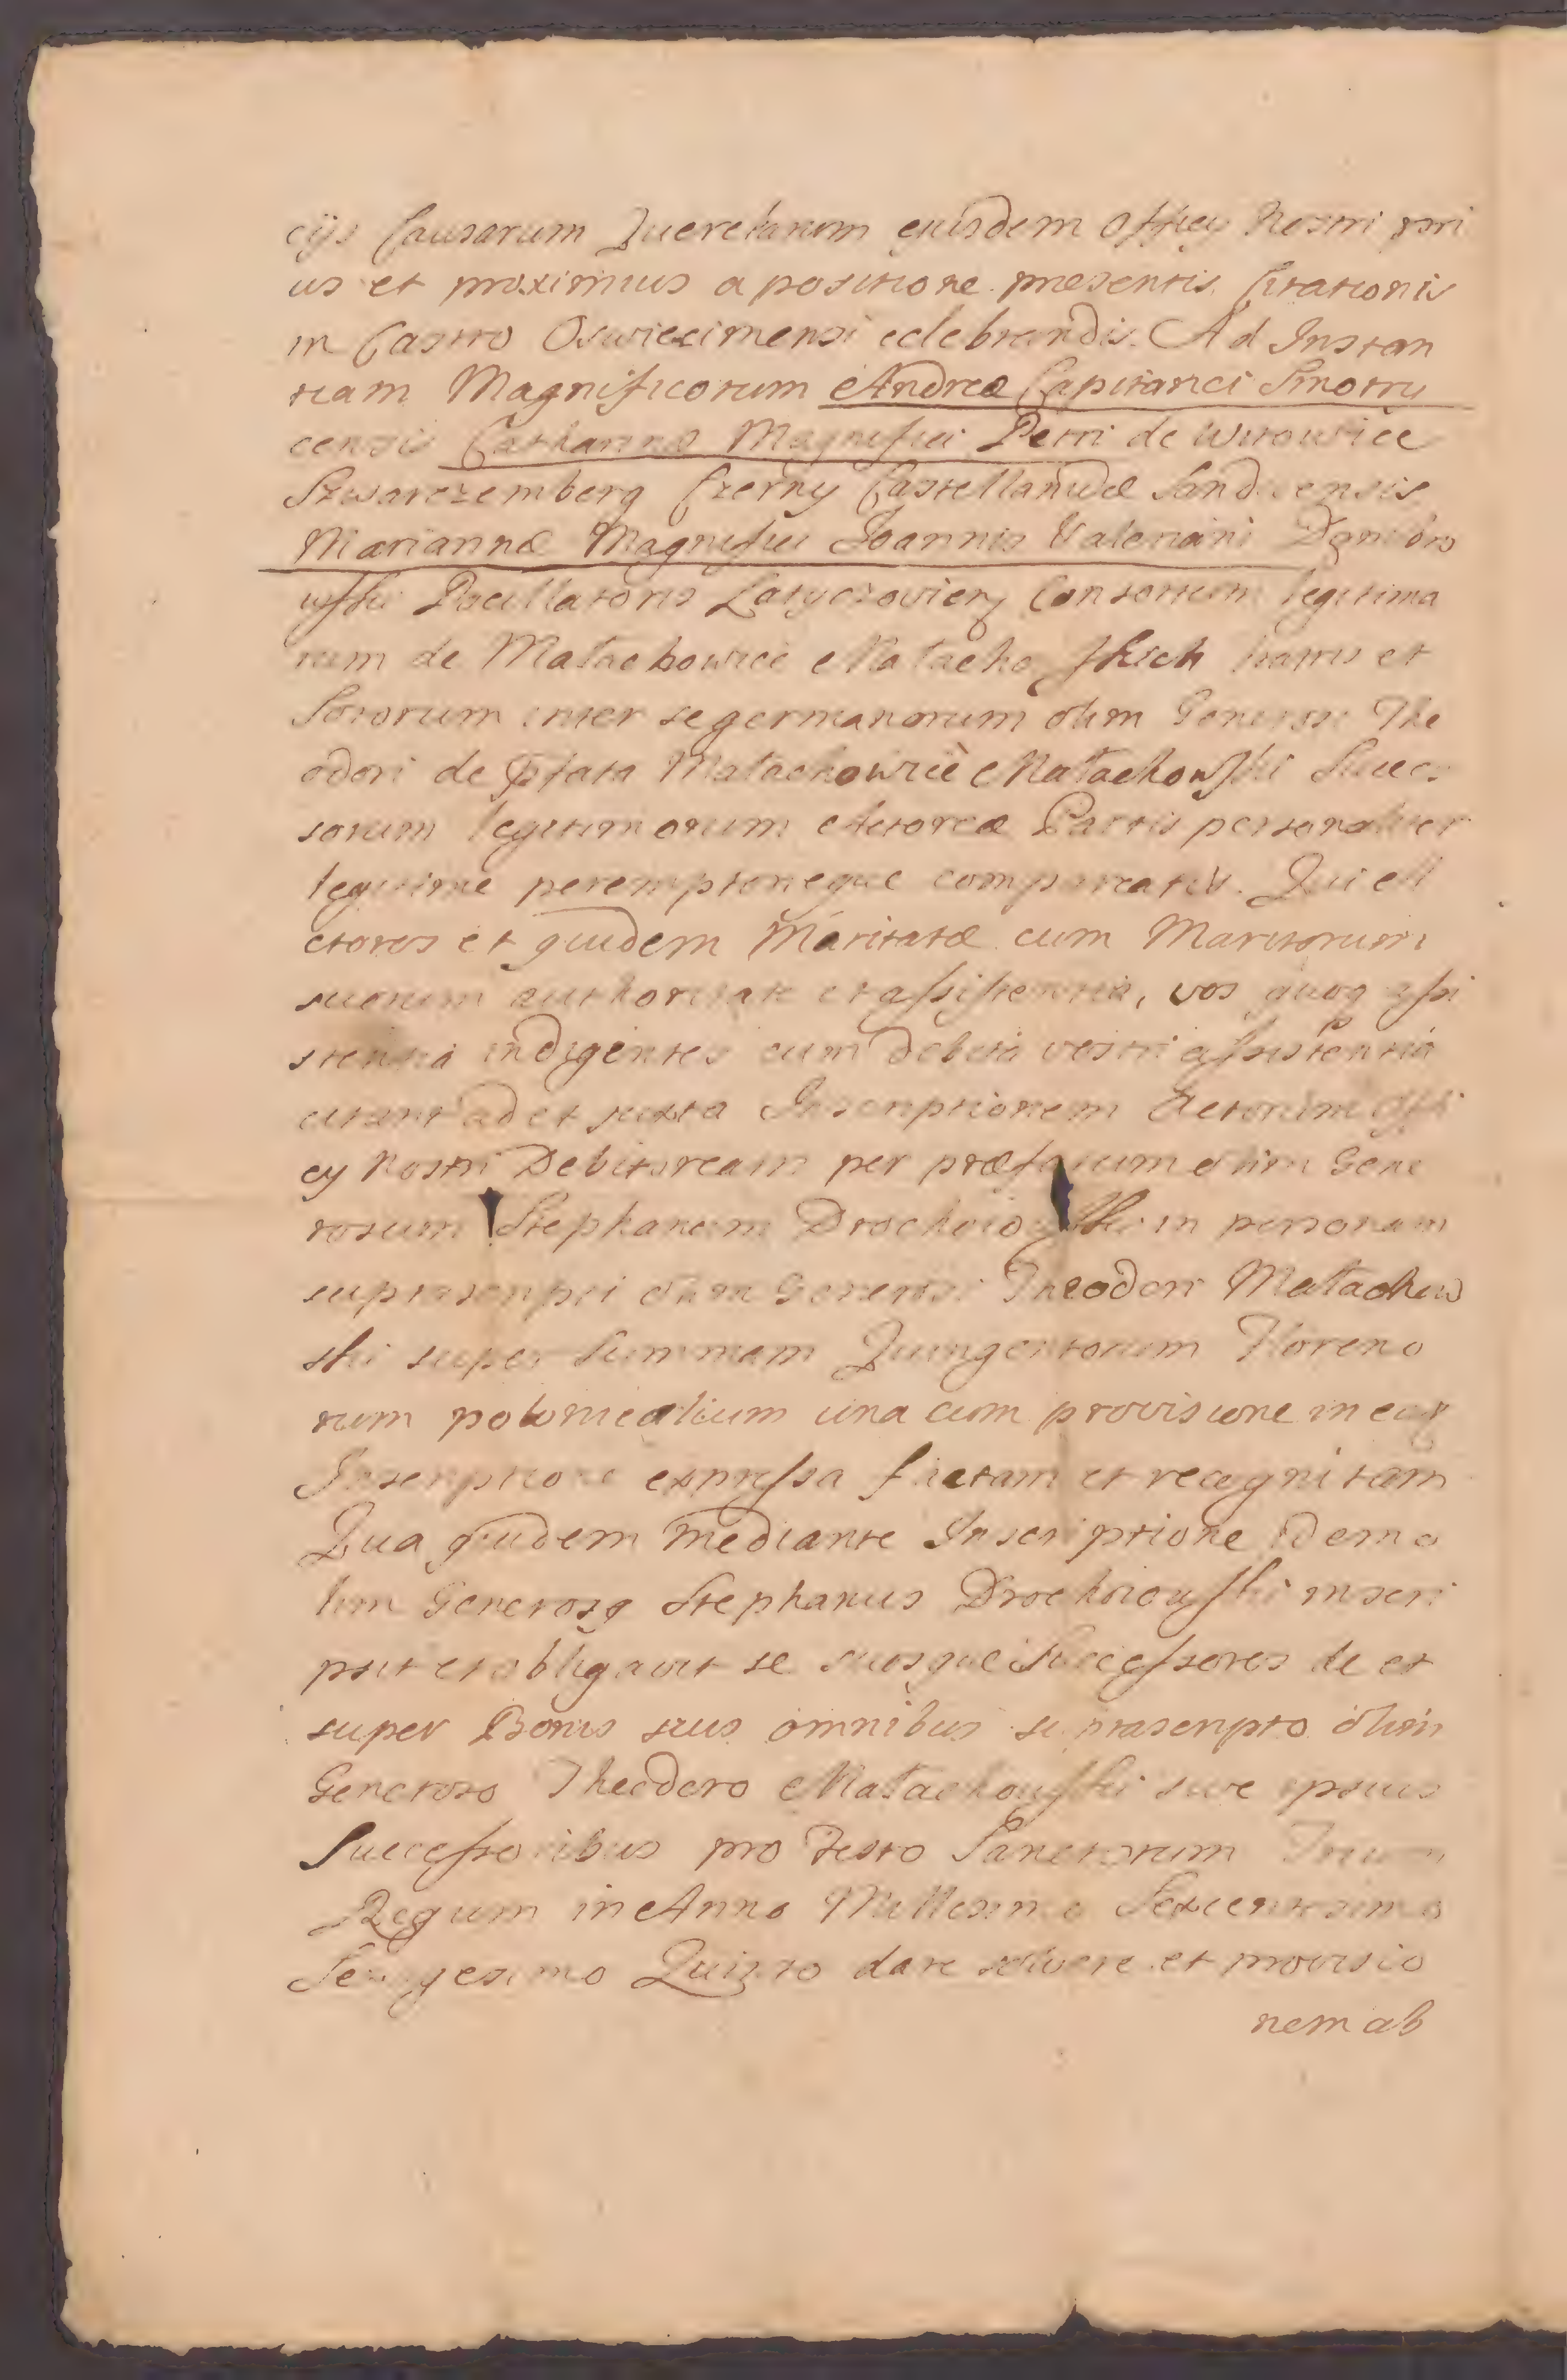 cijs Causarum Querelarum eiusdem Officij Nostri pri
us et proximius a positione præsentis Citationis
in Castro Oswiecimensi celebrandis. Ad Instan
tiam Magnificorum Andreæ Capitanei Smotry
censis Catharinæ Magnifici Petri de Witowice
Szwarczemberg Czerny Castellanidæ Sandecensis
Mariannæ Magnifici Joannis Valeriani Dembro
wski Pocillatoris Latyczovien Consortum legitima
rum de Małachowice Małachoskich fratris et
Sororum inter se germanorum olim Generosi The
odori de pfata Małachowice Małachowski Succes
sorum legitimorum Actoreæ Partis personaliter
legitime peremptorieque compareatis. Qui A
ctores et quidem Maritatæ cum Maritorum
suorum authoritate et assistentia, vos quoq assi
stentia indigentes cum debita vestri assistentia
citant ad et juxta Inscriptionem Actorum Offi
cij Nostri Debitoream per præfatum olim Gene
rosum Stephanum Drochoiowski in personam
suprascripti olim Generosi Theodori Małachow
ski super Summam Quingentorum Floreno
rum polonicalium una cum provisione in eaq
Inscriptione expressa factam et recognitam
Qua quidem mediante Inscriptione idem o
lim Generosq Stephanus Drochoiowski inscri
psit et obligavit se suosque Successores de et
super Bonis suis omnibus suprascripto olim
Generoso Theodoro Małachowski sive ipsius
Successoribus pro Festo Sanctorum Trium
Regum in Anno Millesimo Sexcentesimo
Quinto dare solvere et provisio
nem ab